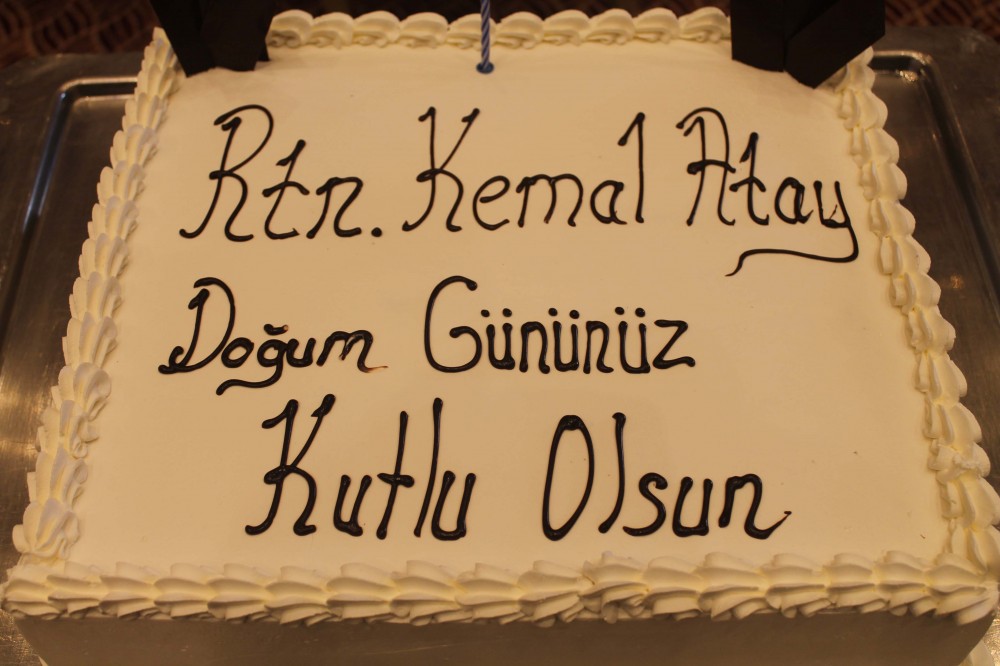 Rtn. Kemal Atay
Doğum Gününüz
Kutlu Olsun